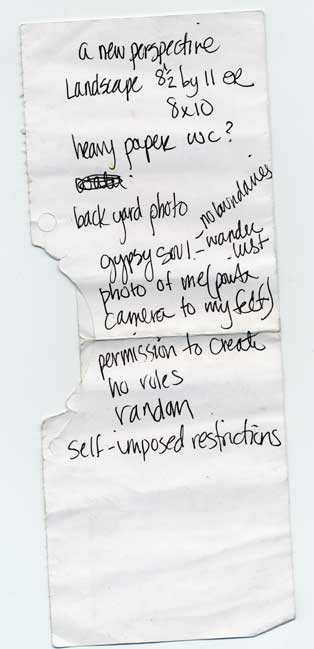 a new perspective
Landscape 8½ by 11 or
8x10
heavy paper wc?
back yard photo
gypsy soul - no boundaries
- wander
lust
photo of me (point
camera to my feet)
permission to create
no rules
random
self-imposed restrictions